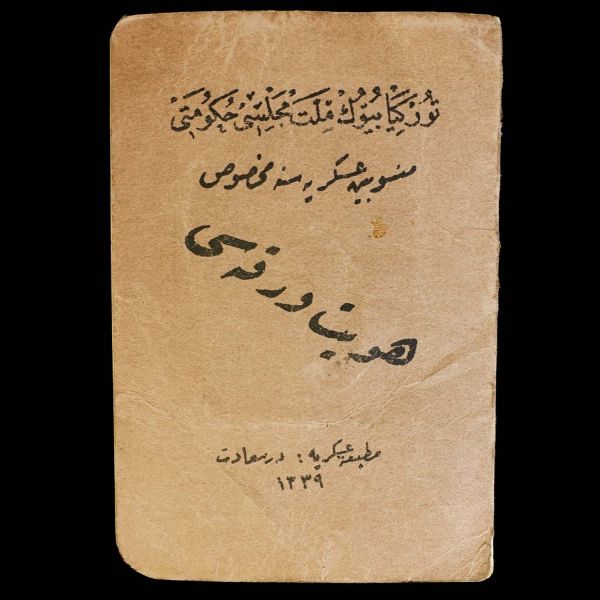 تُورْكِيَا بُيُوكْ مِلَّتْ مَجْلِسِى حُكُومَتِى
منسوبين عسكريه سنه مخصوص
هويت ورقه سى
مطبعهٔ عسكريه : درسعادت
١٣٣٩